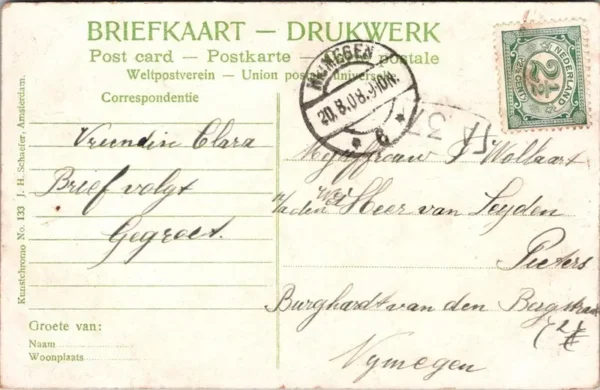 BRIEFKAART — DRUKWERK
Post card — Postkarte — postale
Weltpostverein — Union postale universelle
Correspondentie
Vriendin Clara
Brief volgt
Gegroet.
Groete van:
Naam
Woonplaats
Kunstchromo No. 133 J. H. Schaefer, Amsterdam.
NIJMEGEN
20.8.08.9-10N.
8
NEDERLAND
2½
CENT
37
Mejuffrouw J Wolbaart
a/d den WelEd Heer van Leyden
Pieters
Burghardt van den Bergstraat
72
Nymegen